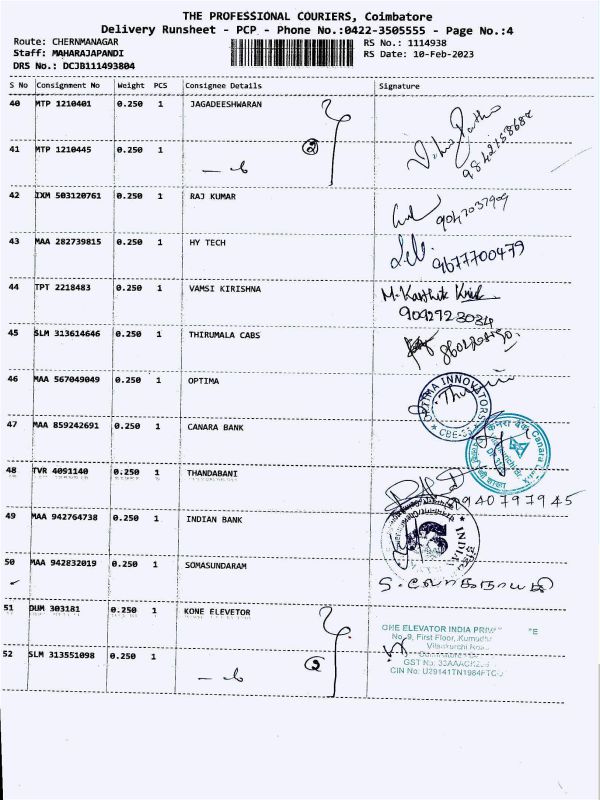 THE PROFESSIONAL COURIERS, Coimbatore
Delivery Runsheet - PCP - Phone No.:0422-3505555 - Page No.:4
Route: CHERNMANAGAR RS No.: 1114938
Staff: MAHARAJAPANDI RS Date: 10-Feb-2023
DRS No.: DCJB111493804
S No Consignment No Weight PCS Consignee Details Signature
40 MTP 1210401 0.250 1 JAGADEESHWARAN
9842158684
41 MTP 1210445 0.250 1
2
42 IXM 503120761 0.250 1 RAJ KUMAR
9047037909
43 MAA 282739815 0.250 1 HY TECH
9677700479
44 TPT 2218483 0.250 1 VAMSI KIRISHNA M. Karthik
9092923034
45 SLM 313614646 0.250 1 THIRUMALA CABS
46 MAA 567049049 0.250 1 OPTIMA
OPTIMA INNOVATORS
CBE
47 MAA 859242691 0.250 1 CANARA BANK
Canara Bank
48 TVR 4091140 0.250 1 THANDABANI
9940797945
49 MAA 942764738 0.250 1 INDIAN BANK
50 MAA 942832019 0.250 1 SOMASUNDARAM
51 DUM 303181 0.250 1 KONE ELEVETOR
ONE ELEVATOR INDIA
No. 9, First Floor, Kumudha
52 SLM 313551098 0.250 1
2
GST No: 33AAACK2
CIN No: U29141TN1984FTC